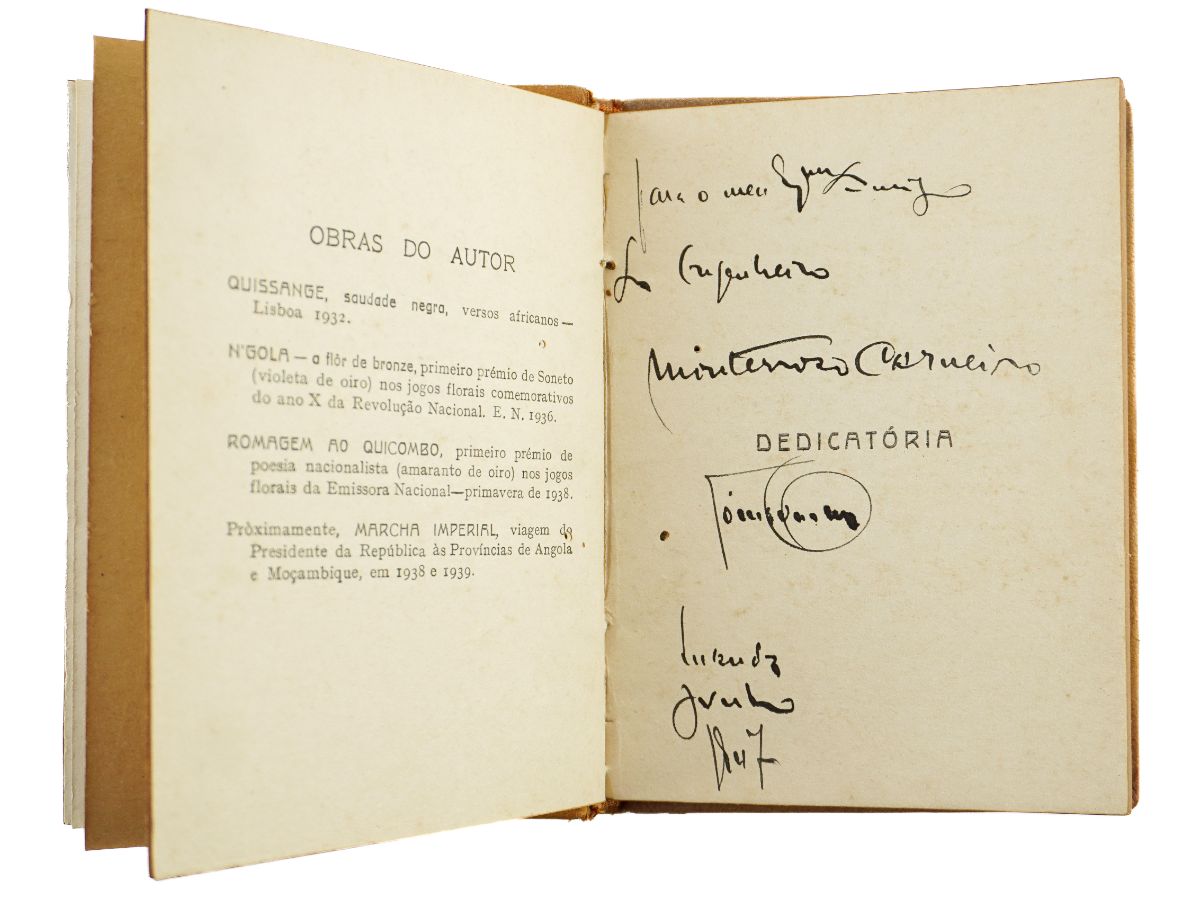 OBRAS DO AUTOR
QUISSANGE, saudade negra, versos africanos —
Lisboa 1932.
N'GOLA — a flôr de bronze, primeiro prémio de Soneto
(violeta de oiro) nos jogos florais comemorativos
do ano X da Revolução Nacional. E. N. 1936.
ROMAGEM AO QUICOMBO, primeiro prémio de
poesia nacionalista (amaranto de oiro) nos jogos
florais da Emissora Nacional—primavera de 1938.
Pròximamente, MARCHA IMPERIAL, viagem do
Presidente da República às Províncias de Angola
e Moçambique, em 1938 e 1939.
Para o meu
Engenheiro
Monterroso Carneiro
DEDICATÓRIA
Luanda
Junho
1947